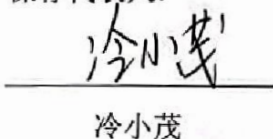 冷小茂
冷小茂